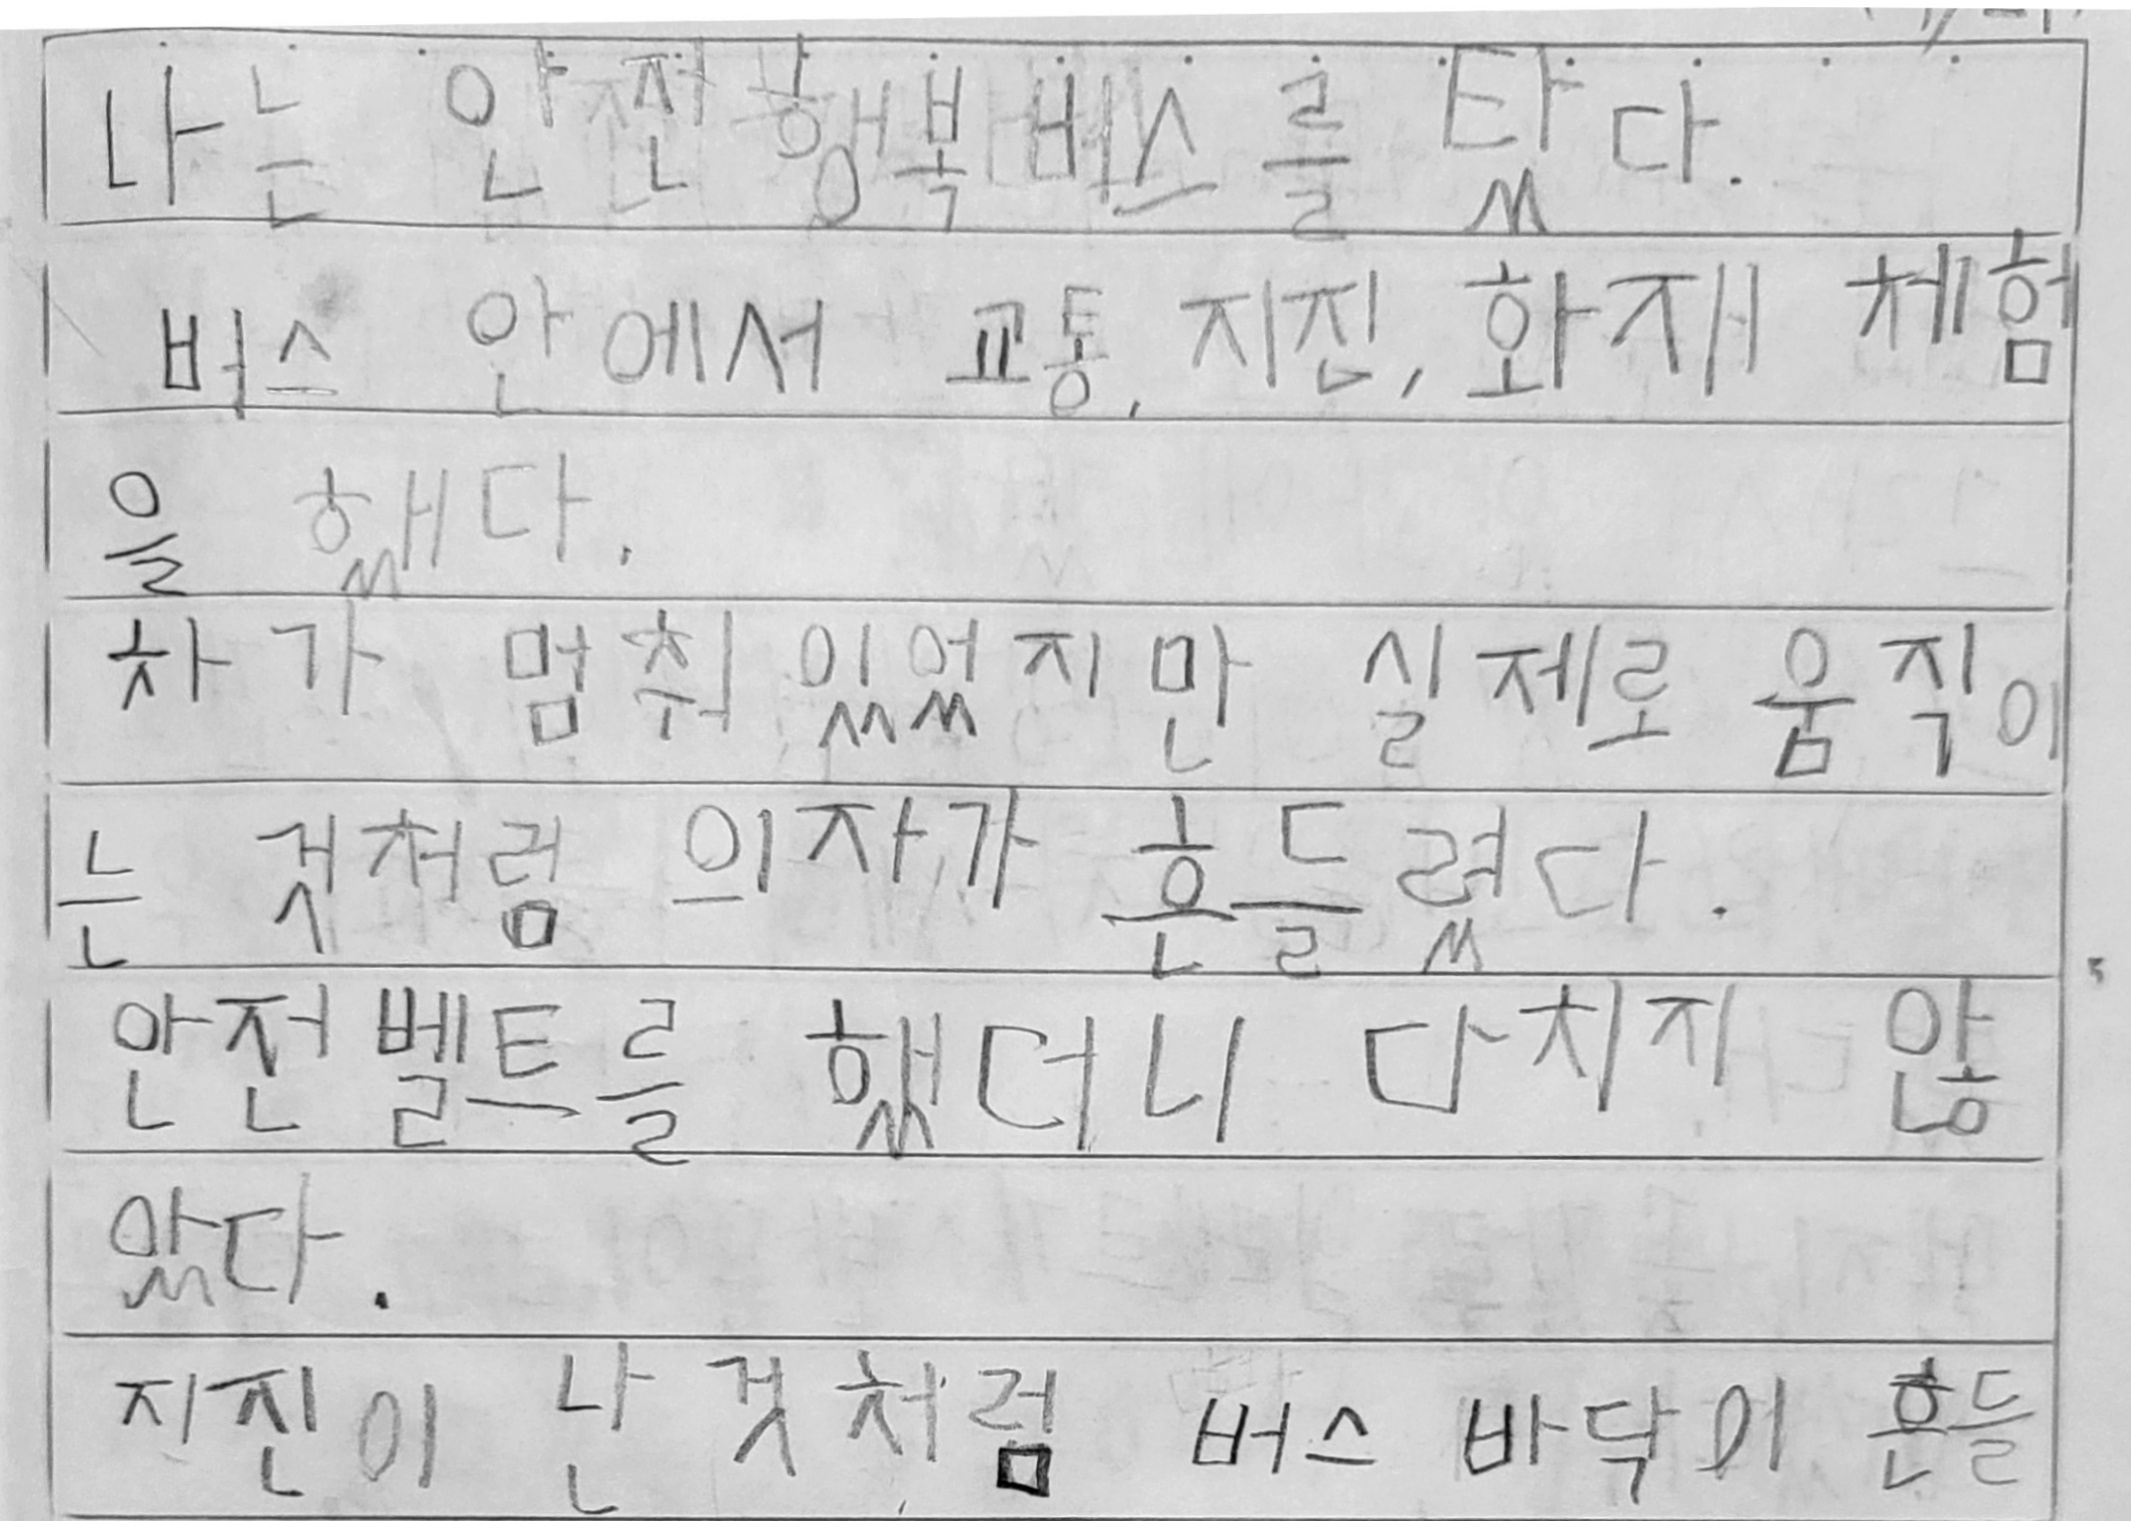 나는 안전행복버스를 탔다.
버스 안에서 교통, 지진, 화재 체험
을 했다.
차가 멈춰있었지만 실제로 움직이
는 것처럼 의자가 흔들렸다.
안전벨트를 했더니 다치지 않
았다.
지진이 난 것처럼 버스 바닥이 흔들